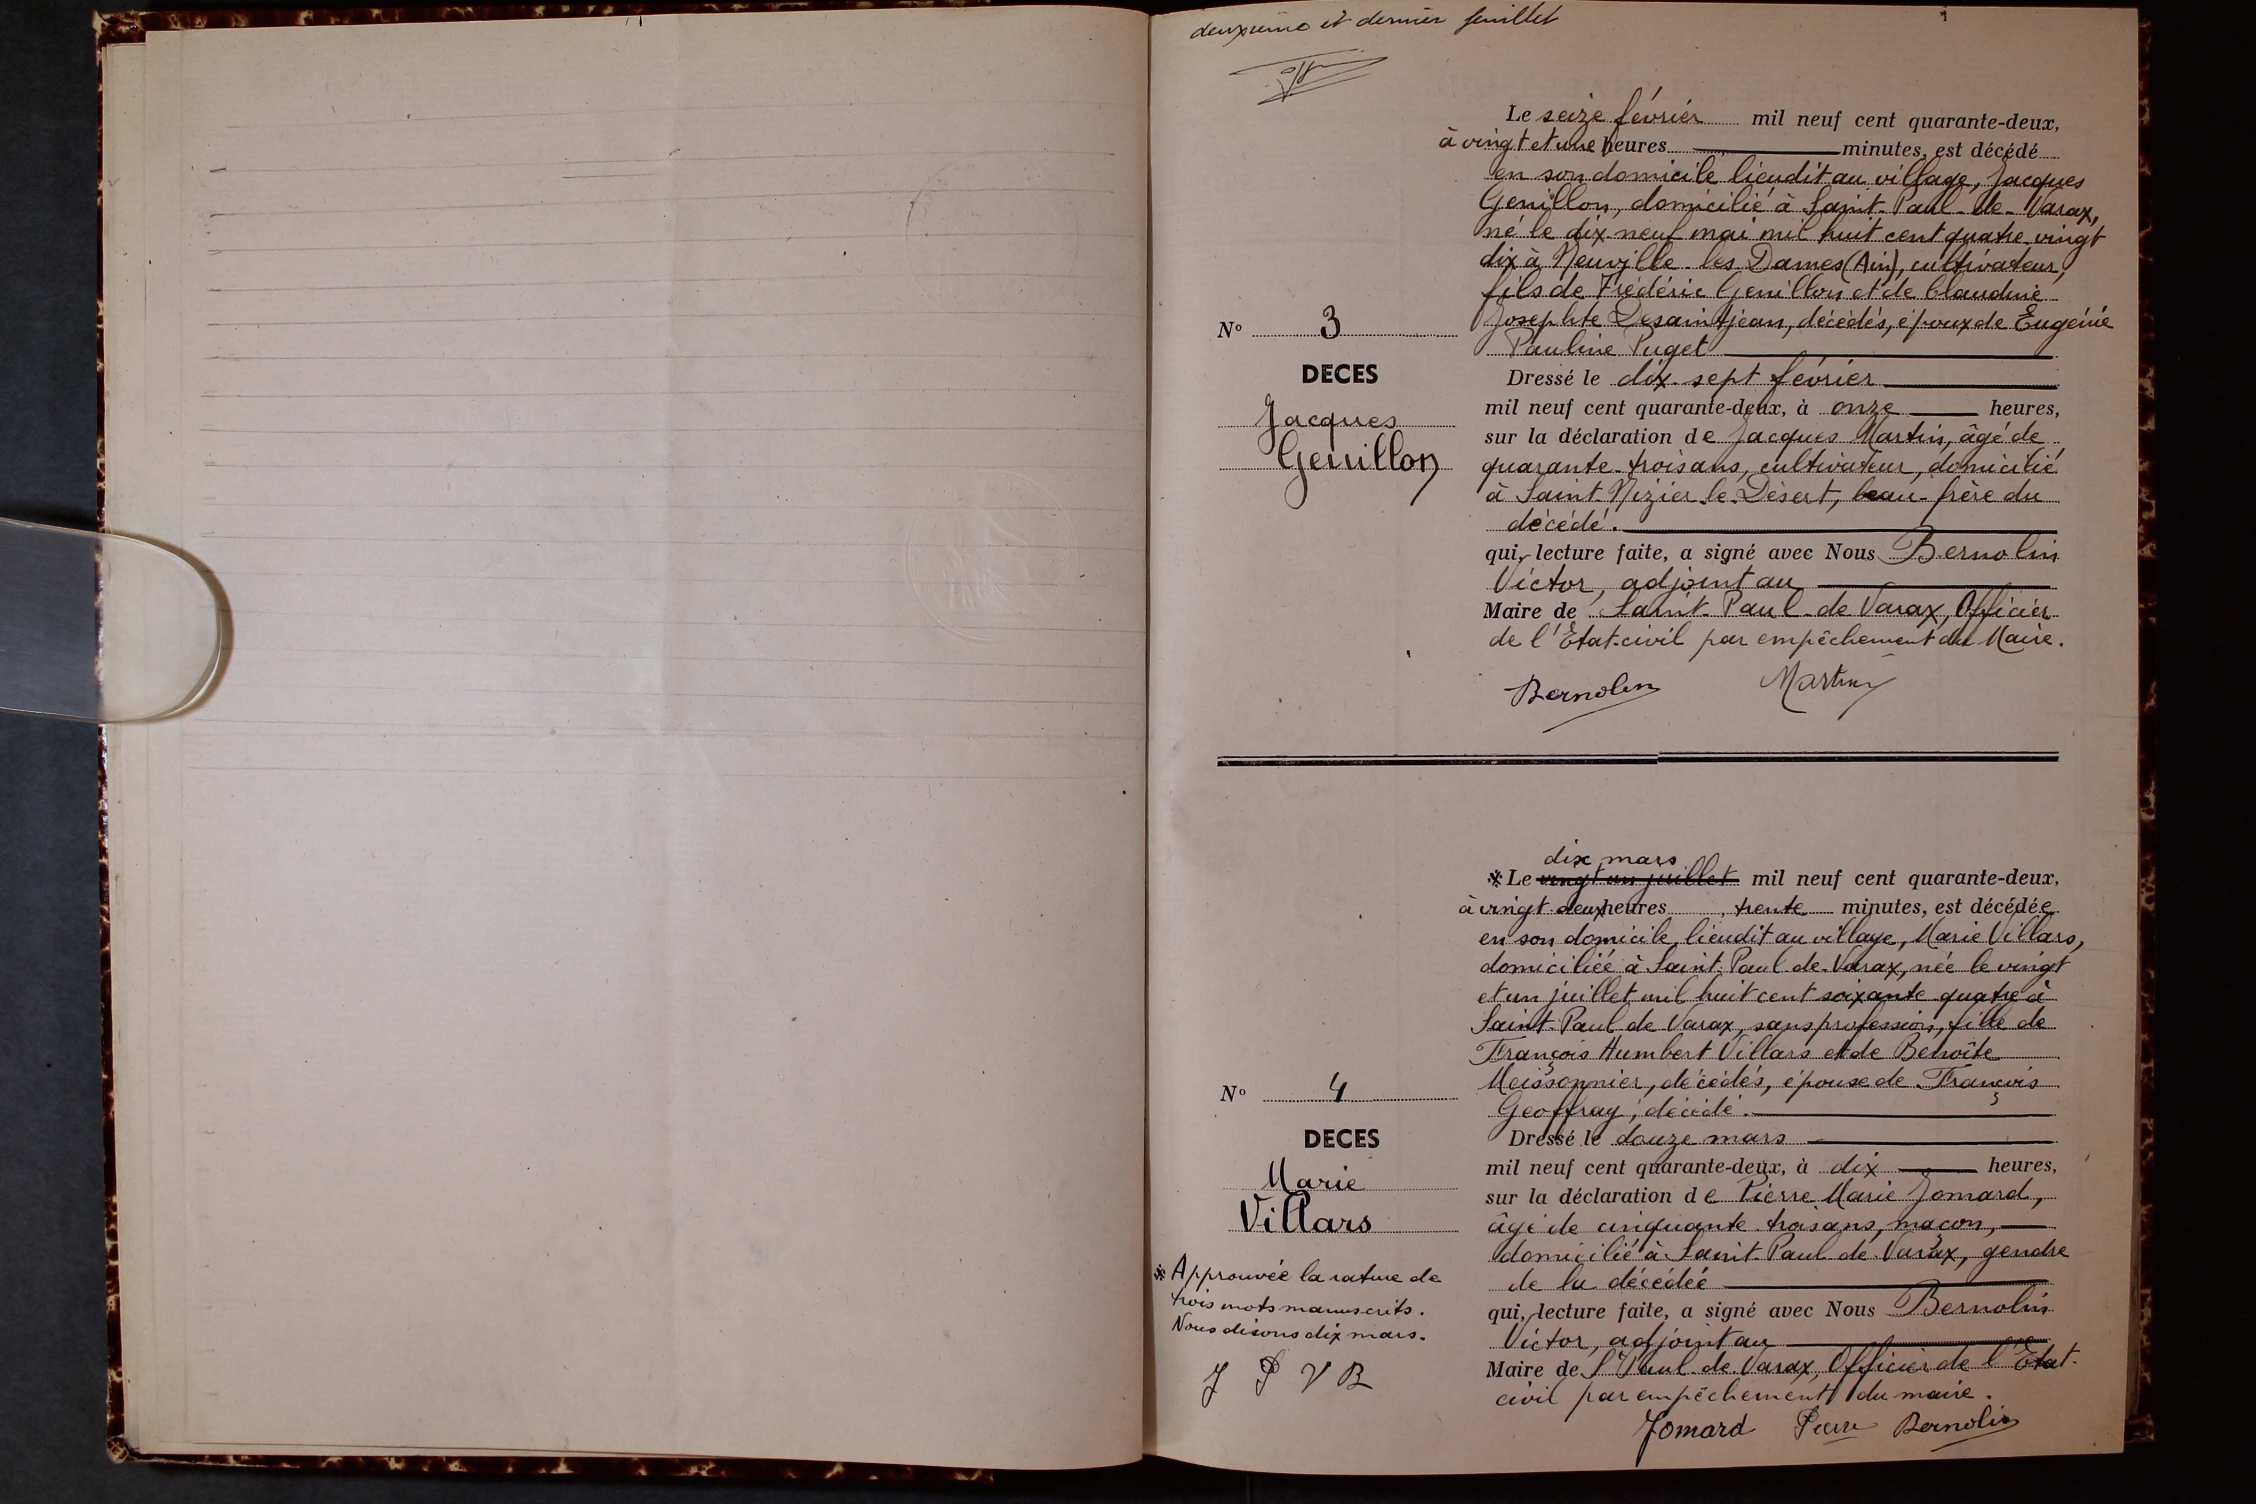 deuxième et dernier feuillet
Le seize février mil neuf cent quarante-deux,
à vingt et une heures minutes, est décédé
en son domicile lieudit au village, Jacques
Genillon, domicilié à Saint-Paul-de-Varax,
né le dix-neuf mai mil huit cent quatre-vingt
dix à Neuville-les-Dames (Ain), cultivateur,
fils de Frédéric Genillon et de Claudine
Josephte Desaintjean, décédés, époux de Eugénie
Pauline Puget
Nº 3
DECES
Jacques
Genillon
Dressé le dix-sept février
mil neuf cent quarante-deux, à onze heures,
sur la déclaration de Jacques Martin, âgé de
quarante-trois ans, cultivateur, domicilié
à Saint-Nizier-le-Désert, beau-frère du
décédé.
qui, lecture faite, a signé avec Nous Bernolin
Victor, adjoint au
Maire de Saint-Paul-de-Varax, Officier
de l'Etat-civil par empêchement du Maire.
Bernolin Martin
dix mars
* Le vingt un juillet mil neuf cent quarante-deux,
à vingt-deux heures trente minutes, est décédée
en son domicile, lieudit au village, Marie Villars,
domiciliée à Saint-Paul-de-Varax, née le vingt
et un juillet mil huit cent soixante-quatre à
Saint-Paul de Varax, sans profession, fille de
François Humbert Villars et de Benoîte
Meissonnier, décédés, épouse de François
Geoffray, décédé.
Nº 4
DECES
Marie
Villars
* Approuvée la rature de
trois mots manuscrits.
Nous disons dix mars.
J P V B
Dressé le douze mars
mil neuf cent quarante-deux, à dix heures,
sur la déclaration de Pierre Marie Jomard,
âgé de cinquante-trois ans, maçon,
domicilié à Saint-Paul-de-Varax, gendre
de la décédée
qui, lecture faite, a signé avec Nous Bernolin
Victor, adjoint au
Maire de St Paul-de-Varax, Officier de l'Etat-
civil par empêchement du maire.
Jomard Pierre Bernolin